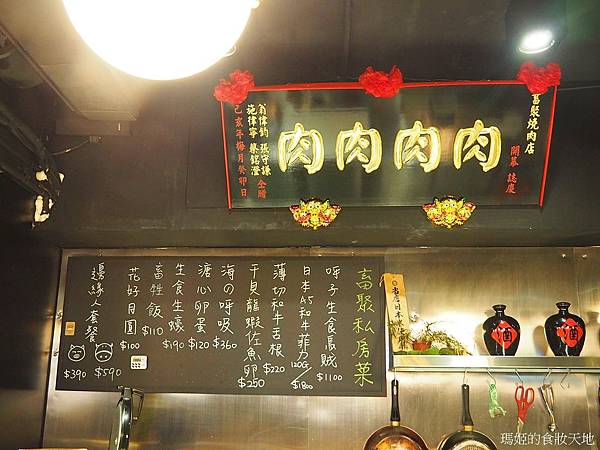 畜聚燒肉店
開幕誌慶
肉肉肉肉
翁偉鈞 張守謙
施律寧 蔡銘澄 仝贈
己亥年梅月癸卯日
畜聚私房菜
呼子生食馬賊 $1100
日本A5和牛菲力 120G/$1800
薄切和牛舌根 $220
干貝龍蝦佐魚卵 $250
海の呼吸 $360
溏心卵蛋 $120
生食生蠔 $190
畜牲飯 $110
花好月圓 $100
邊緣人套餐
$390 $590
酒
酒
瑪姬的食妝天地